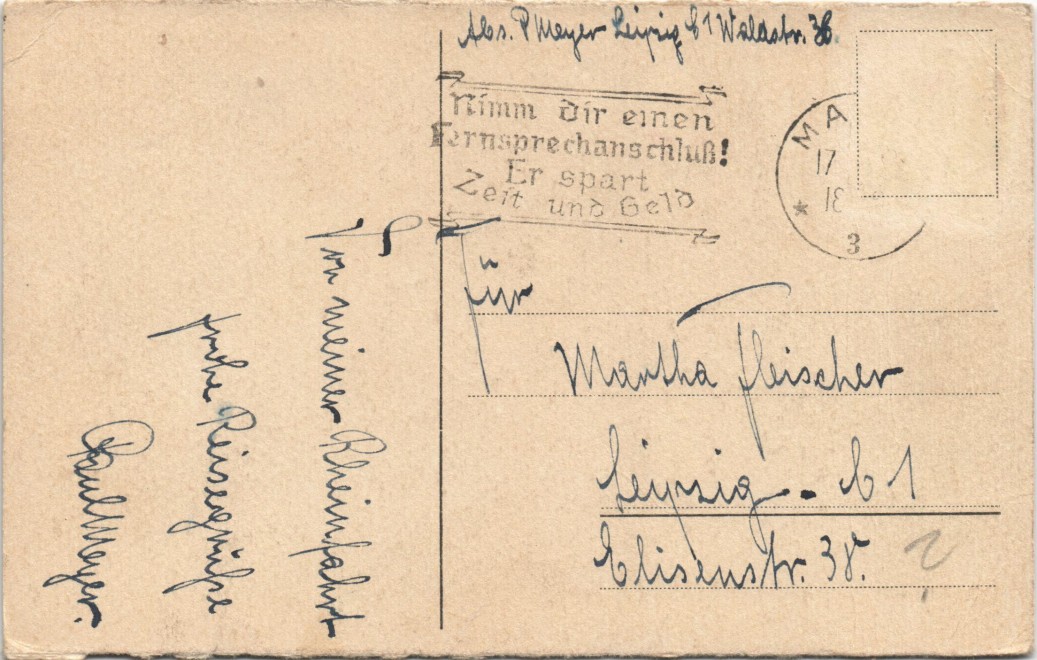 Abs. P Meyer Leipzig C 1 Waldstr. 36.
Nimm dir einen
Fernsprechanschluß!
Er spart
Zeit und Geld
MA
17
18
*
3
Von meiner Rheinfahrt
frohe Reisegrüße
Paul Meyer.
Für
Martha Fleischer
Leipzig - C 1
Elisenstr. 38.